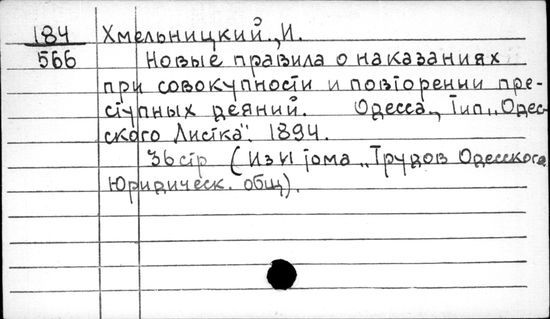 184 Хмельницкий., И.
566 Новые правила о наказаниях
при совокупности и повторении пре-
ступных деяний. Одесса., Тип. „Одес-
ского Листка“. 1894.
36 стр (Из VI тома „Трудов Одесского
Юридическ. общ).